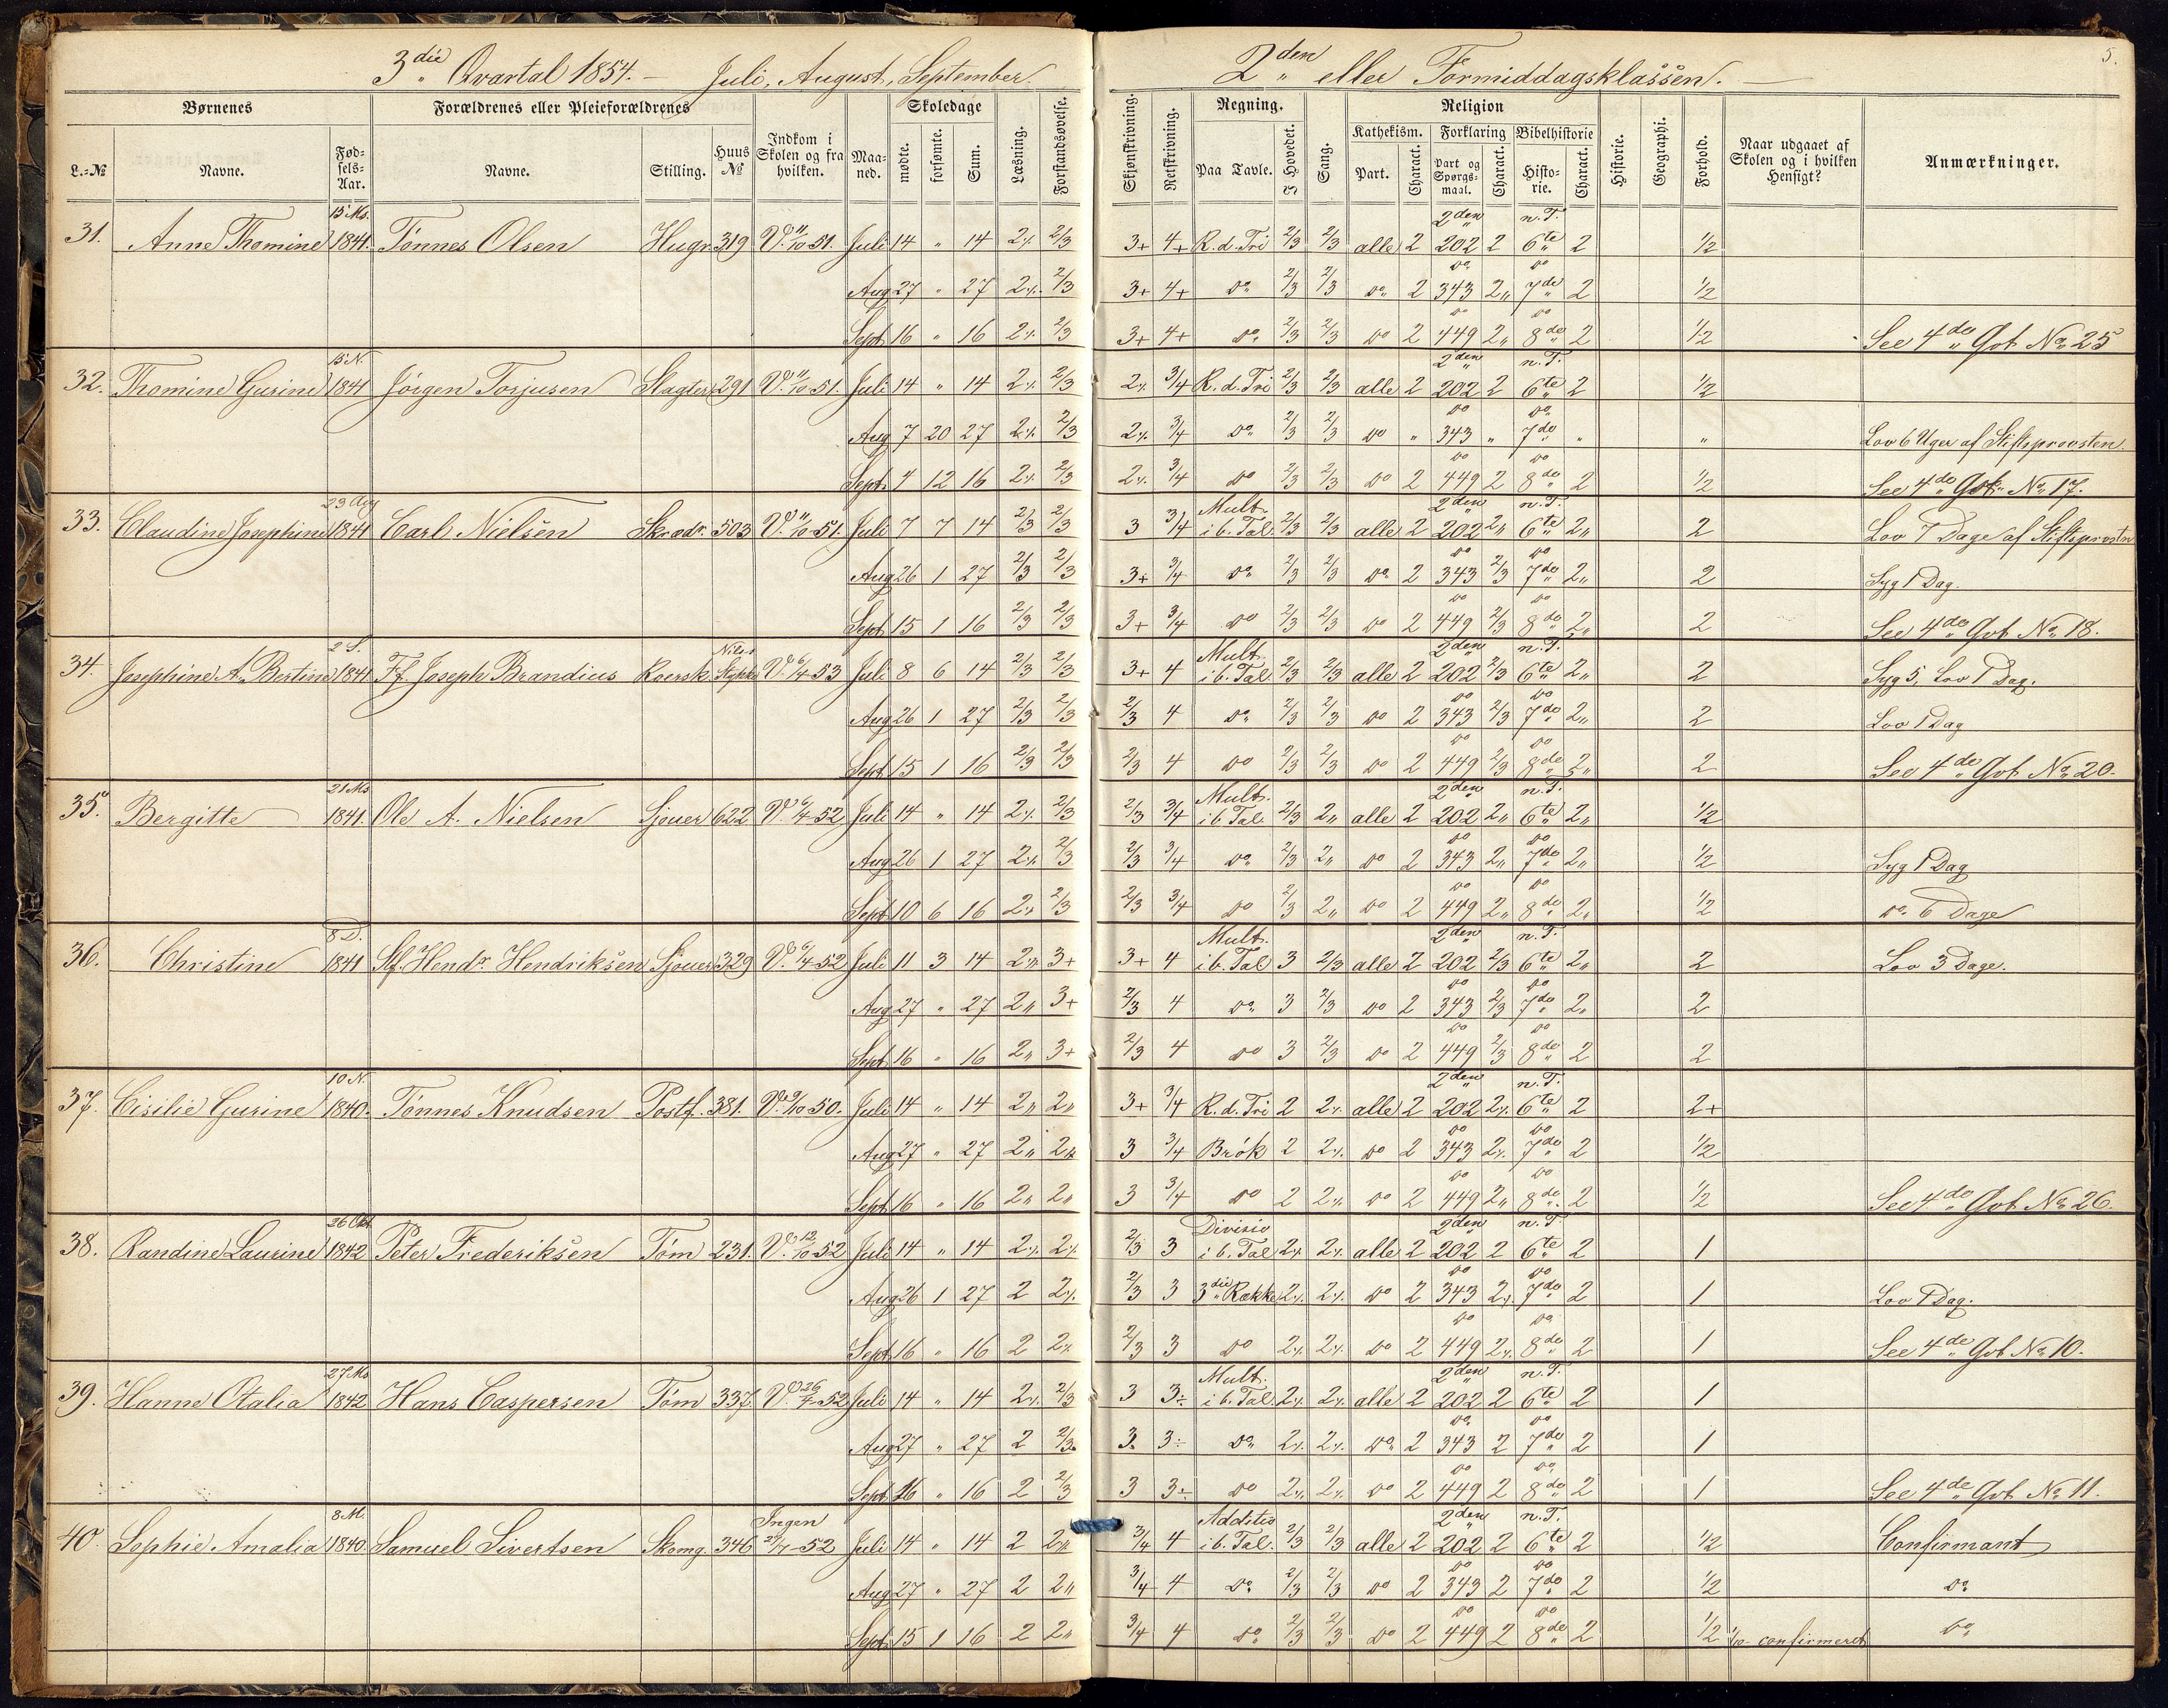 3die Qvartal 1854. — Juli, August, September.
2den eller Formiddagsklassen. —
5.
Børnenes Forældrenes eller Pleieforældrenes Indkom i Skolen og fra hvilken. Maaned. Skoledage Læsning. Forstandsøvelse. Skjønskrivning. Retskrivning. Regning. Sang. Religion Historie. Geographi. Forhold. Naar udgaaet af Skolen og i hvilken Hensigt? Anmærkninger.
L.-No Navne. Fødsels-Aar. Navne. Stilling. Huus No mødte. forsømte. Sum. Paa Tavle. I Hovedet. Kathekism. Forklaring Bibelhistorie
Part. Charact. Part og Spørgsmaal. Charact. Historie. Charact.
15 Ms. 2den n. T.
31. Anne Thomine 1841. Tønnes Olsen Hugr. 319 V. 11/10 51. Juli 14 " 14 2% 2/3 3+ 4+ R. d. Tri 2/3 2/3 alle 2 202 2 6te 2 1/2
Aug 27 " 27 2% 2/3 3+ 4+ do 2/3 2/3 do 2 do 343 2" do 7de 2 1/2
Sept 16 " 16 2% 2/3 3+ 4+ do 2/3 2/3 do 2 do 449 2" do 8de 2 1/2 See 4de Qvt No 25
15 N. 2den n. T.
32. Thomine Gurine 1841 Jørgen Torjusen Slagter 291 V. 11/10 51. Juli 14 " 14 2% 2/3 2% 3/4 R. d. Tri 2/3 2/3 alle 2 202 2 6te 2 1/2
Aug 7 20 27 2% 2/3 2% 3/4 do 2/3 2/3 do " do 343 " do 7de " " Lov 6 Uger af Stiftsprovsten.
Sept 4 12 16 2% 2/3 2% 3/4 do 2/3 2/3 do 2 do 449 2 do 8de 2 1/2 See 4de Qvt No 17.
23 Aug Mult. 2den n. T.
33. Claudine Josephine 1841 Carl Nielsen Skrædr. 503 V. 11/10 51. Juli 7 7 14 2/3 2/3 3 3/4 i b. Tal. 2/3 2/3 alle 2 202 2" 6te 2" 2 Lov 7 Dage af Stiftsprovstn
Aug 26 1 27 2/3 2/3 3+ 3/4 do 2/3 2/3 do 2 do 343 2/3 do 7de 2" 2 Syg 1 Dag.
Sept 15 1 16 2/3 2/3 3+ 3/4 do 2/3 2/3 do 2 do 449 2/3 do 8de 2" 2 See 4de Qvt No 18.
2 S. Mult. 2den n. T.
34. Josephine A. Bertine 1841 Ff. Joseph Brandius V. 6/4 53 Juli 8 6 14 2/3 2/3 3+ 4 i b. Tal 2/3 2/3 alle 2 202 2/3 6te 2" 2 Syg 5, Lov 1 Dag.
Aug 26 1 27 2/3 2/3 2/3 4 do 2/3 2/3 do 2 do 343 2/3 do 7de 2" 2 Lov 1 Dag
Sept 15 1 16 2/3 2/3 2/3 4 do 2/3 2/3 do 2 do 449 2/3 do 8de 2" 2 See 4de Qvt No 20.
21 Ms Mult. 2den n. T.
35. Bergitte 1841. Ole A. Nielsen Sjouer 622 V. 6/4 52 Juli 14 " 14 2% 2/3 2/3 3/4 i b. Tal. 2/3 2" alle 2 202 2" 6te 2" 1/2
Aug 26 1 27 2% 2/3 2/3 3/4 do 2/3 2" do 2 do 343 2" do 7de 2" 1/2 Syg 1 Dag
Sept 10 6 16 2% 2/3 2/3 3/4 do 2/3 2" do 2 do 449 2" do 8de 2" 1/2 do 6 Dage
8 D. Mult. 2den n. T.
36. Christine 1841 Sf. Hendr. Hendriksen Sjouer 329 V. 6/4 52 Juli 11 3 14 2" 3+ 3+ 4 i b. Tal 3 2/3 alle 2 202 2/3 6te 2" 2 Lov 3 Dage.
Aug 27 " 27 2" 3+ 2/3 4 do 3 2/3 do 2 do 343 2/3 do 7de 2" 2
Sept 16 " 16 2" 3+ 2/3 4 do 3 2/3 do 2 do 449 2/3 do 8de 2 2
10 N. 2den n. T.
37. Cisilie Gurine 1840. Tønnes Knudsen Postf. 381. V. 9/10 50. Juli 14 " 14 2" 2" 3+ 3/4 R. d. Tri 2 2% alle 2 202 2% 6te 2 2+
Aug 27 " 27 2" 2" 3 3/4 Brök 2 2% do 2 do 343 2% do 7de 2 1/2
Sept 16 " 16 2" 2" 3 3/4 do 2 2% do 2 do 449 2" do 8de 2 1/2 See 4de Qvt No 26.
26 Okt Divisio 2den n. T.
38. Randine Laurine 1842 Peter Frederiksen Tøm 231. V. 12/10 52 Juli 14 " 14 2% 2% 2/3 3 i b. Tal 2% 2% alle 2 202 2 6te 2 1
Aug 26 1 27 2 2% 2/3 3 3die Række 2% 2% do 2 do 343 2% do 7de 2 1 Lov 1 Dag.
Sept 16 " 16 2 2% 2/3 3 do 2% 2% do 2 do 449 2% do 8de 2 1 See 4de Qvt No 10.
27 Ms Mult. 2den n. T.
39. Hanne Otalia 1842 Hans Caspersen Tøm 337. V. 26/4 52 Juli 14 " 14 2% 2/3 3 3÷ i b. Tal. 2% 2% alle 2 202 2 6te 2 1
Aug 27 " 27 2 2/3 3. 3÷ do 2% 2% do 2 do 343 2 do 7de 2 1
Sept 16 " 16 2 2/3 3 3÷ do 2% 2% do 2 do 449 2 do 8de 2 1 See 4de Qvt No 11.
8 M. Ingen Additio 2den n. T.
40. Sophie Amalia 1840. Samuel Sivertsen Skomg. 346 27/7 52 Juli 14 " 14 2 2" 3/4 4 i b. Tal. 2/3 2/3 alle 2 202 2 6te 2 1/2 Confirmant
Aug 27 " 27 2 2" 3/4 4 do 2/3 2/3 do 2 do 343 2 do 7de 2 1/2 do
Sept 15 1 16 2 2" 3/4 4 do 2/3 2/3 do 2 do 449 2 do 8de 2 1/2 1/10 confirmeret do